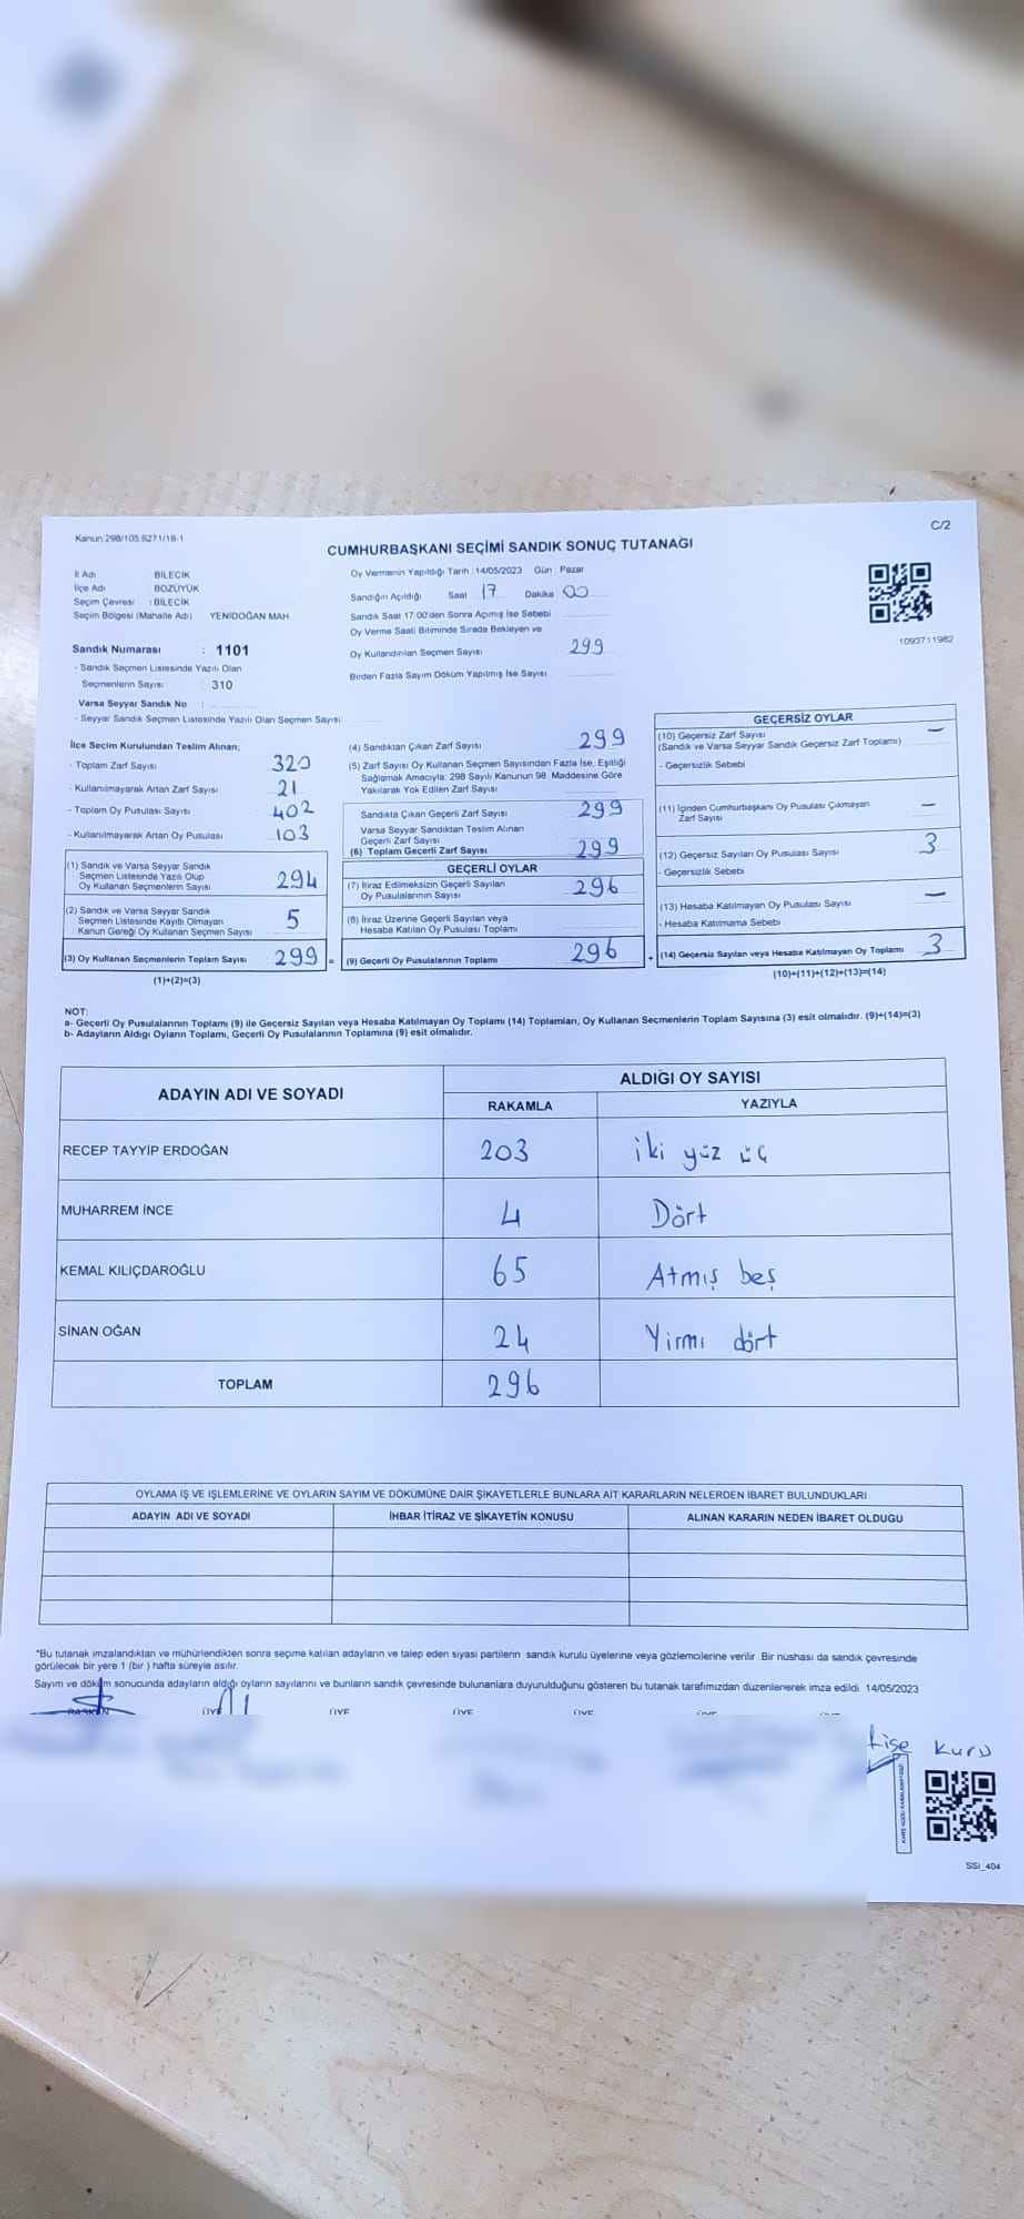 Kanun 298/105 6271/18-1
C/2
CUMHURBAŞKANI SEÇİMİ SANDIK SONUÇ TUTANAĞI
İl Adı BİLECİK
İlçe Adı BOZÜYÜK
Seçim Çevresi : BİLECİK
Seçim Bölgesi (Mahalle Adı) YENİDOĞAN MAH
Oy Vermenin Yapıldığı Tarih : 14/05/2023 Gün : Pazar
Sandığın Açıldığı Saat 17 Dakika 00
Sandık Saat 17:00'den Sonra Açılmış İse Sebebi
Oy Verme Saati Bitiminde Sırada Bekleyen ve
Oy Kullandırılan Seçmen Sayısı 299
Birden Fazla Sayım Döküm Yapılmış İse Sayısı
1093711982
Sandık Numarası : 1101
- Sandık Seçmen Listesinde Yazılı Olan
Seçmenlerin Sayısı 310
Varsa Seyyar Sandık No :
- Seyyar Sandık Seçmen Listesinde Yazılı Olan Seçmen Sayısı
İlçe Seçim Kurulundan Teslim Alınan;
- Toplam Zarf Sayısı 320
- Kullanılmayarak Artan Zarf Sayısı 21
- Toplam Oy Pusulası Sayısı 402
- Kullanılmayarak Artan Oy Pusulası 103
(1) Sandık ve Varsa Seyyar Sandık
Seçmen Listesinde Yazılı Olup
Oy Kullanan Seçmenlerin Sayısı 294
(2) Sandık ve Varsa Seyyar Sandık
Seçmen Listesinde Kayıtlı Olmayan
Kanun Gereği Oy Kullanan Seçmen Sayısı 5
(3) Oy Kullanan Seçmenlerin Toplam Sayısı 299 =
(1)+(2)=(3)
(4) Sandıktan Çıkan Zarf Sayısı 299
(5) Zarf Sayısı Oy Kullanan Seçmen Sayısından Fazla İse, Eşitliği
Sağlamak Amacıyla; 298 Sayılı Kanunun 98. Maddesine Göre
Yakılarak Yok Edilen Zarf Sayısı
Sandıkta Çıkan Geçerli Zarf Sayısı 299
Varsa Seyyar Sandıktan Teslim Alınan
Geçerli Zarf Sayısı
(6) Toplam Geçerli Zarf Sayısı 299
GEÇERLİ OYLAR
(7) İtiraz Edilmeksizin Geçerli Sayılan
Oy Pusulalarının Sayısı 296
(8) İtiraz Üzerine Geçerli Sayılan veya
Hesaba Katılan Oy Pusulası Toplamı
(9) Geçerli Oy Pusulalarının Toplamı 296 +
GEÇERSİZ OYLAR
(10) Geçersiz Zarf Sayısı —
(Sandık ve Varsa Seyyar Sandık Geçersiz Zarf Toplamı)
- Geçersizlik Sebebi
(11) İçinden Cumhurbaşkanı Oy Pusulası Çıkmayan
Zarf Sayısı —
(12) Geçersiz Sayılan Oy Pusulası Sayısı 3
- Geçersizlik Sebebi
(13) Hesaba Katılmayan Oy Pusulası Sayısı —
- Hesaba Katılmama Sebebi
(14) Geçersiz Sayılan veya Hesaba Katılmayan Oy Toplamı 3
(10)+(11)+(12)+(13)=(14)
NOT:
a- Geçerli Oy Pusulalarının Toplamı (9) ile Geçersiz Sayılan veya Hesaba Katılmayan Oy Toplamı (14) Toplamları, Oy Kullanan Seçmenlerin Toplam Sayısına (3) eşit olmalıdır. (9)+(14)=(3)
b- Adayların Aldığı Oyların Toplamı, Geçerli Oy Pusulalarının Toplamına (9) eşit olmalıdır.
ADAYIN ADI VE SOYADI
ALDIĞI OY SAYISI
RAKAMLA YAZIYLA
RECEP TAYYİP ERDOĞAN 203 iki yüz üç
MUHARREM İNCE 4 Dört
KEMAL KILIÇDAROĞLU 65 Atmış beş
SİNAN OĞAN 24 Yirmi dört
TOPLAM 296
OYLAMA İŞ VE İŞLEMLERİNE VE OYLARIN SAYIM VE DÖKÜMÜNE DAİR ŞİKAYETLERLE BUNLARA AİT KARARLARIN NELERDEN İBARET BULUNDUKLARI
ADAYIN ADI VE SOYADI İHBAR İTİRAZ VE ŞİKAYETİN KONUSU ALINAN KARARIN NEDEN İBARET OLDUĞU
*Bu tutanak imzalandıktan ve mühürlendikten sonra seçime katılan adayların ve talep eden siyasi partilerin sandık kurulu üyelerine veya gözlemcilerine verilir. Bir nüshası da sandık çevresinde
görülecek bir yere 1 (bir ) hafta süreyle asılır.
Sayım ve döküm sonucunda adayların aldığı oyların sayılarını ve bunların sandık çevresinde bulunanlara duyurulduğunu gösteren bu tutanak tarafımızdan düzenlenerek imza edildi. 14/05/2023
BAŞKAN ÜYE ÜYE ÜYE ÜYE
Lise Kuru
SSİ_404